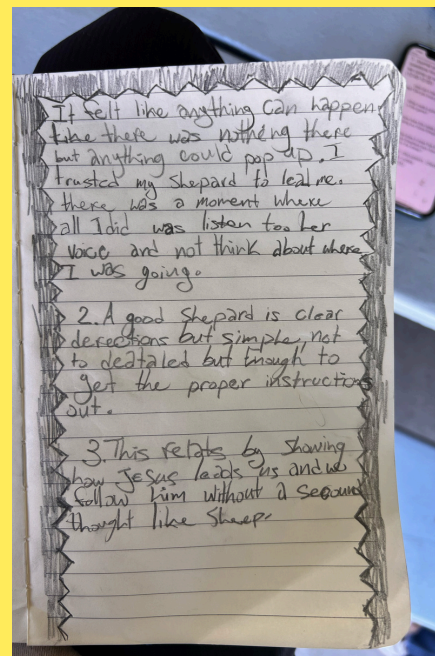 It felt like anything can happen
like there was nothing there
but anything could pop up. I
trusted my Shepard to lead me.
there was a moment where
all I did was listen too her
voice and not think about where
I was going.
2. A good Shepard is clear
derections but simple, not
to deataled but enough to
get the proper instructions
out.
3. This relats by showing
how Jesus leads us and we
follow him without a second
thought like Sheep.